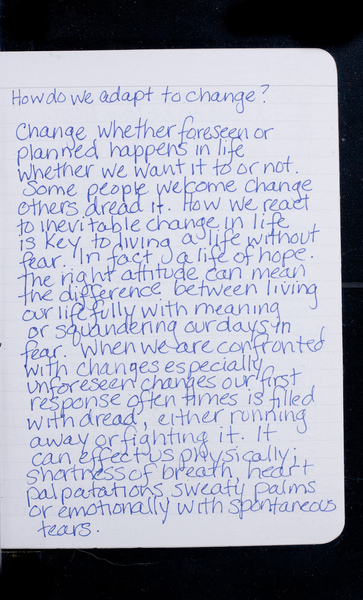 How do we adapt to change?
Change, whether foreseen or
planned happens in life
whether we want it to or not.
Some people welcome change
others dread it. How we react
to inevitable change in life
is key to living a life without
fear. In fact, a life of hope.
The right attitude can mean
the difference between living
our life fully with meaning
or squandering our days in
fear. When we are confronted
with changes especially
unforeseen changes our first
response often times is filled
with dread, either running
away or fighting it. It
can effect us physically;
shortness of breath, heart
palpatations, sweaty palms
or emotionally with spontaneous
tears.